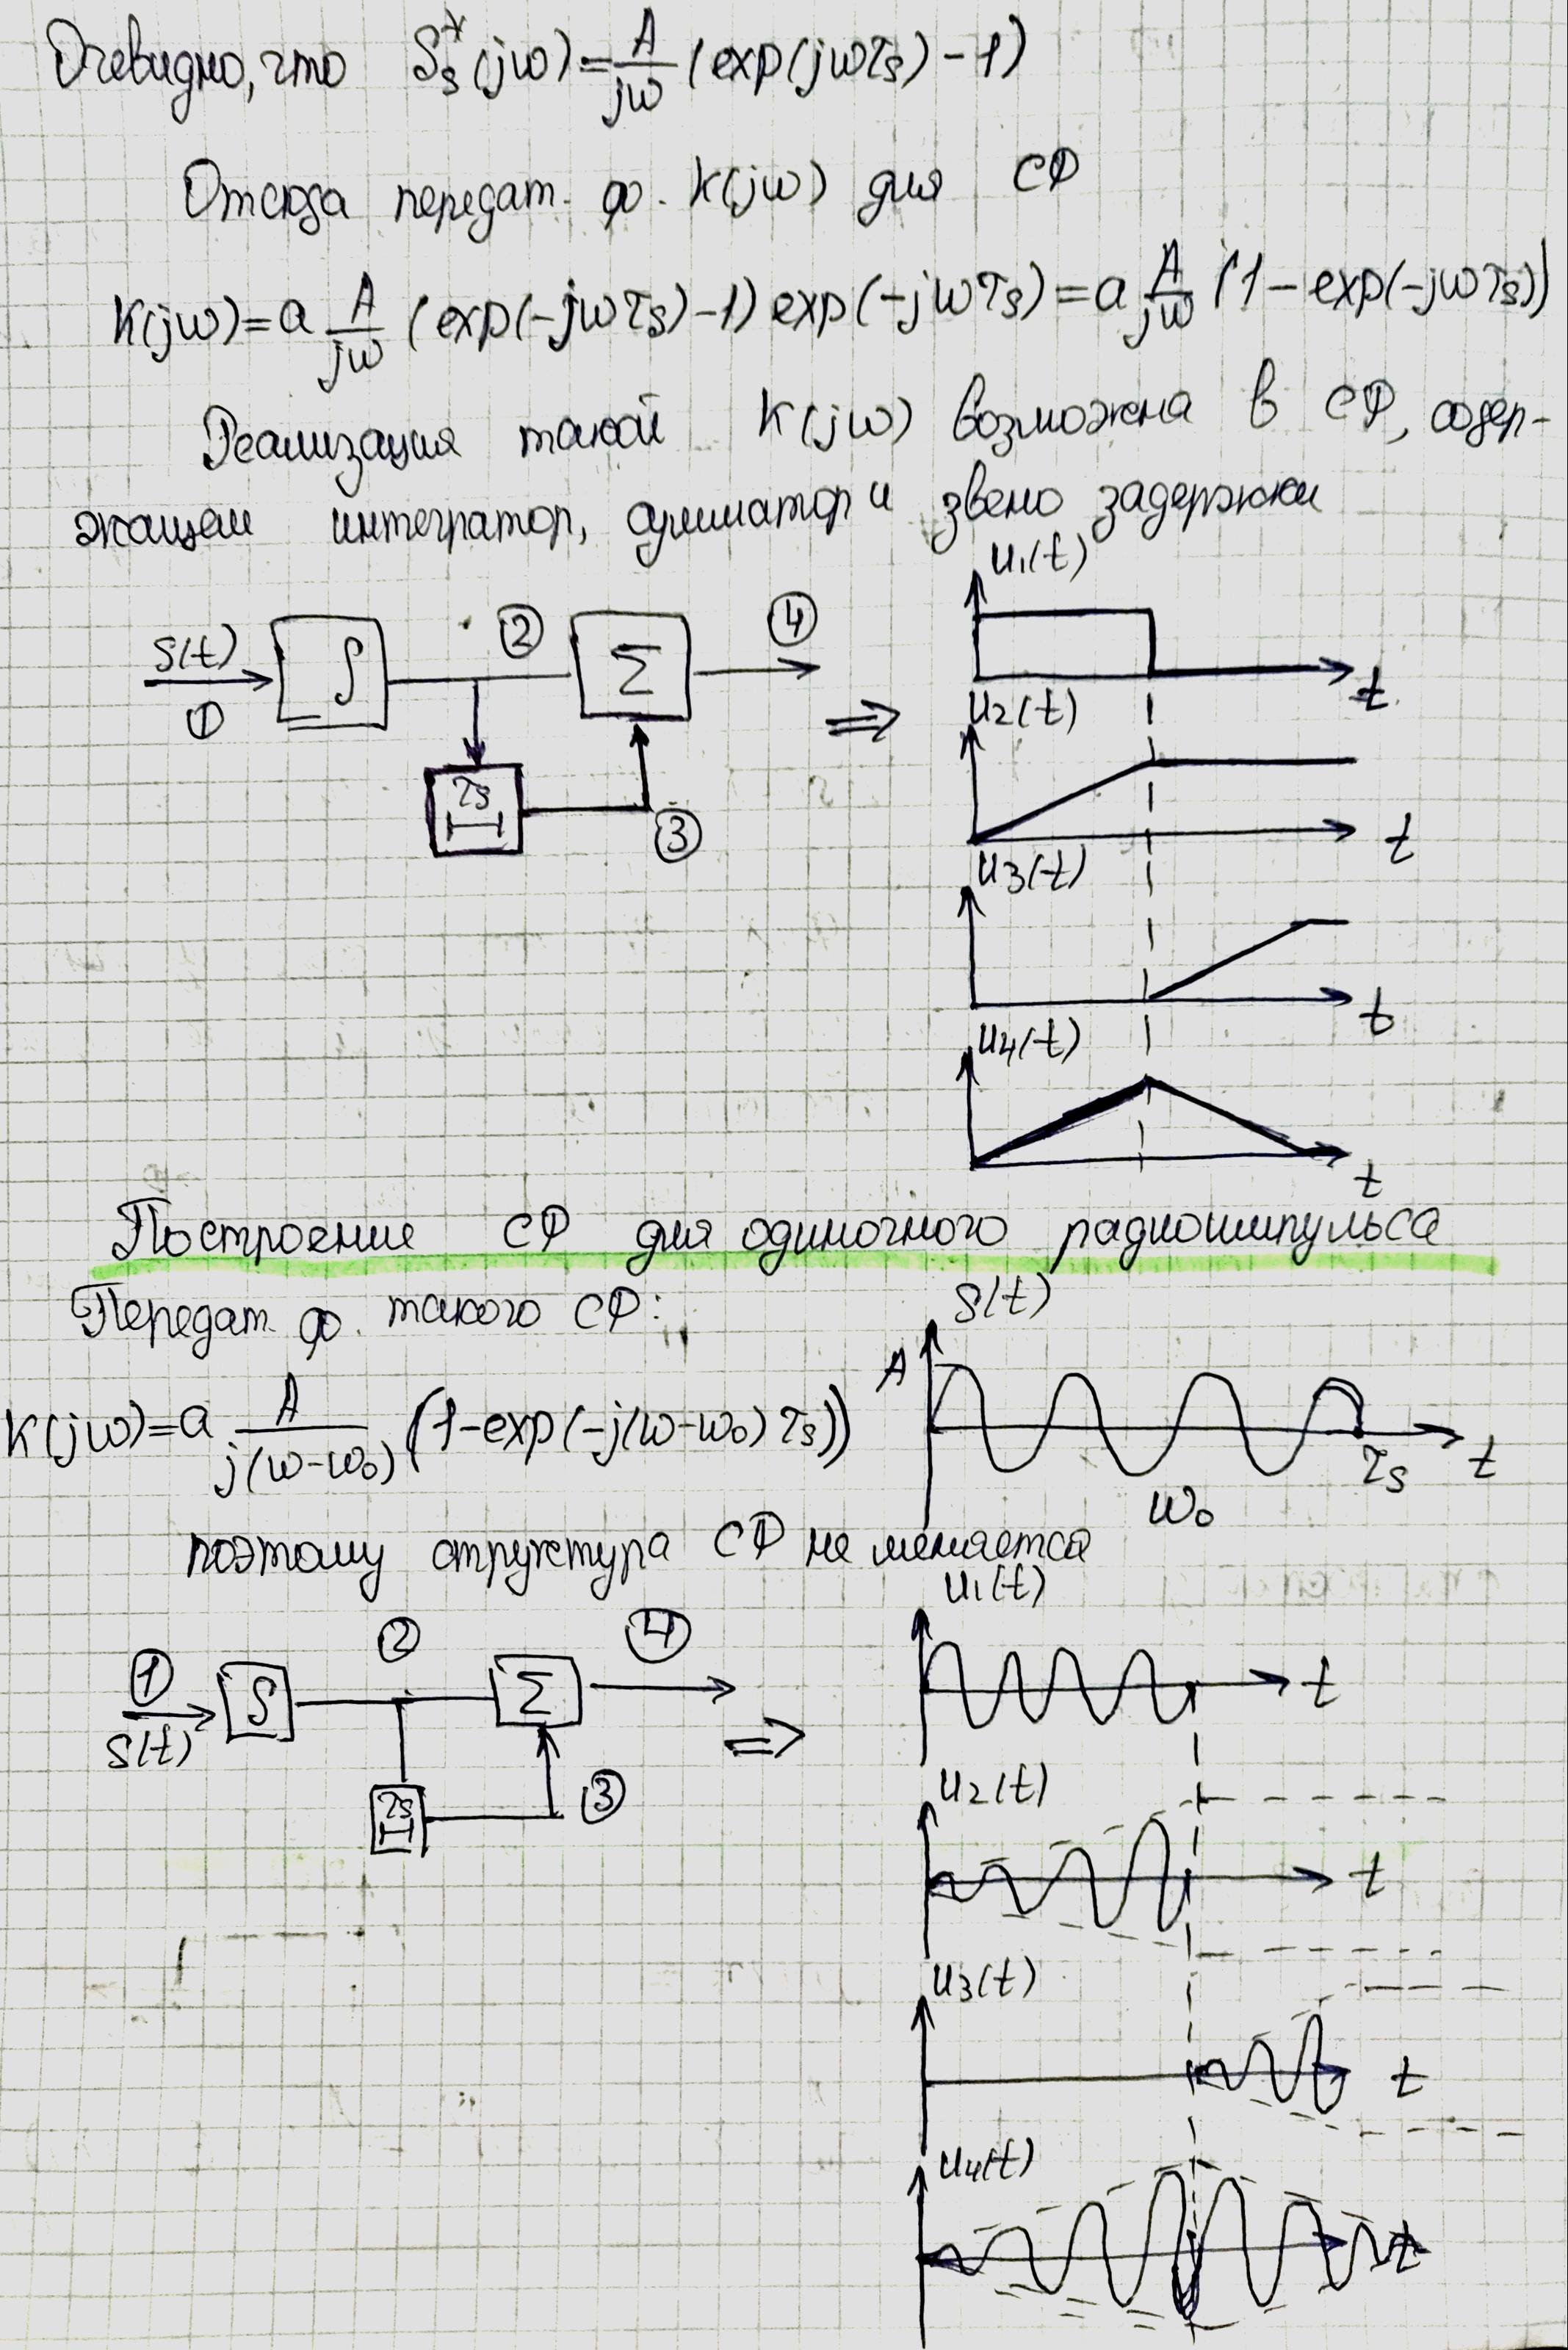 Очевидно, что S*s(jω)=A/jω (exp(jωτs)-1)
Отсюда передат. ф. K(jω) для СФ
K(jω)=a A/jω (exp(-jωτs)-1) exp(-jωτs)=a A/jω (1-exp(-jωτs))
Реализация такой K(jω) возможна в СФ, содер-
жащем интегратор, сумматор и звено задержки
u₁(t)
S(t) ① ∫ ② Σ ④
t
τs ③
⇒
u₂(t)
t
u₃(t)
t
u₄(t)
t
Построение СФ для одиночного радиоимпульса
Передат. ф. такого СФ:
S(t)
A
K(jω)=a A/j(ω-ω₀) (1-exp(-j(ω-ω₀)τs))
τs t
ω₀
поэтому структура СФ не меняется
u₁(t)
① S(t) ∫ ② Σ ④
t
τs ③
⇒
u₂(t)
t
u₃(t)
t
u₄(t)
t